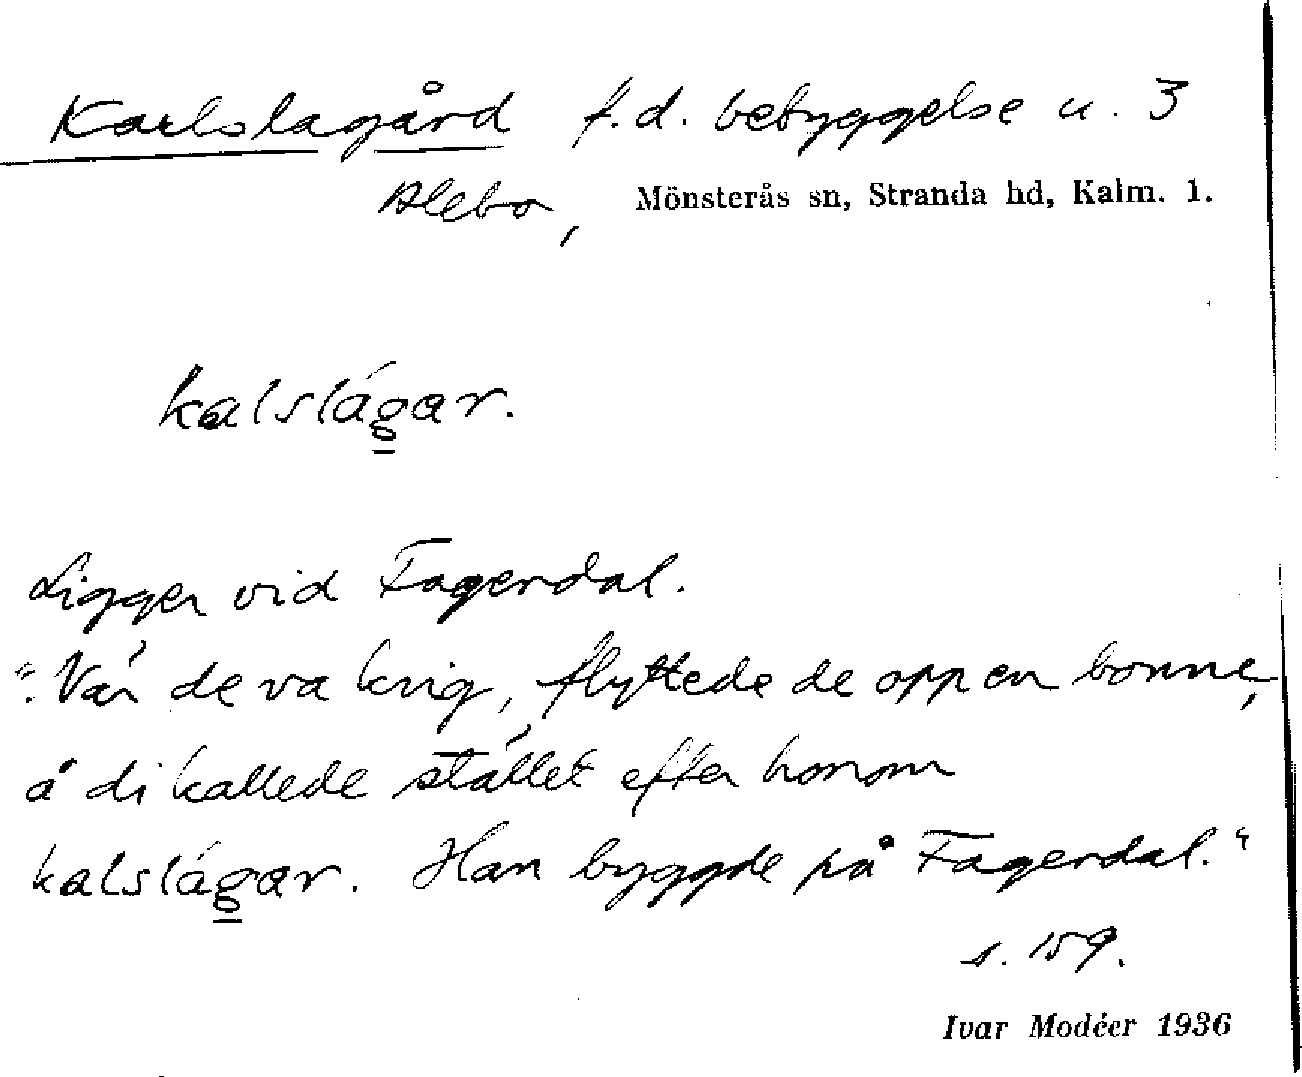 Karlslagård f.d. bebyggelse u. 3
Alebo, Mönsterås sn, Stranda hd, Kalm. l.
kalslágar.
Ligger vid Fagerdal.
"Vár de va krig, flyttede de opp en bonne,
å di kallede stállet efter honom
kalslágar. Han byggde på Fagerdal."
s. 159.
Ivar Modéer 1936